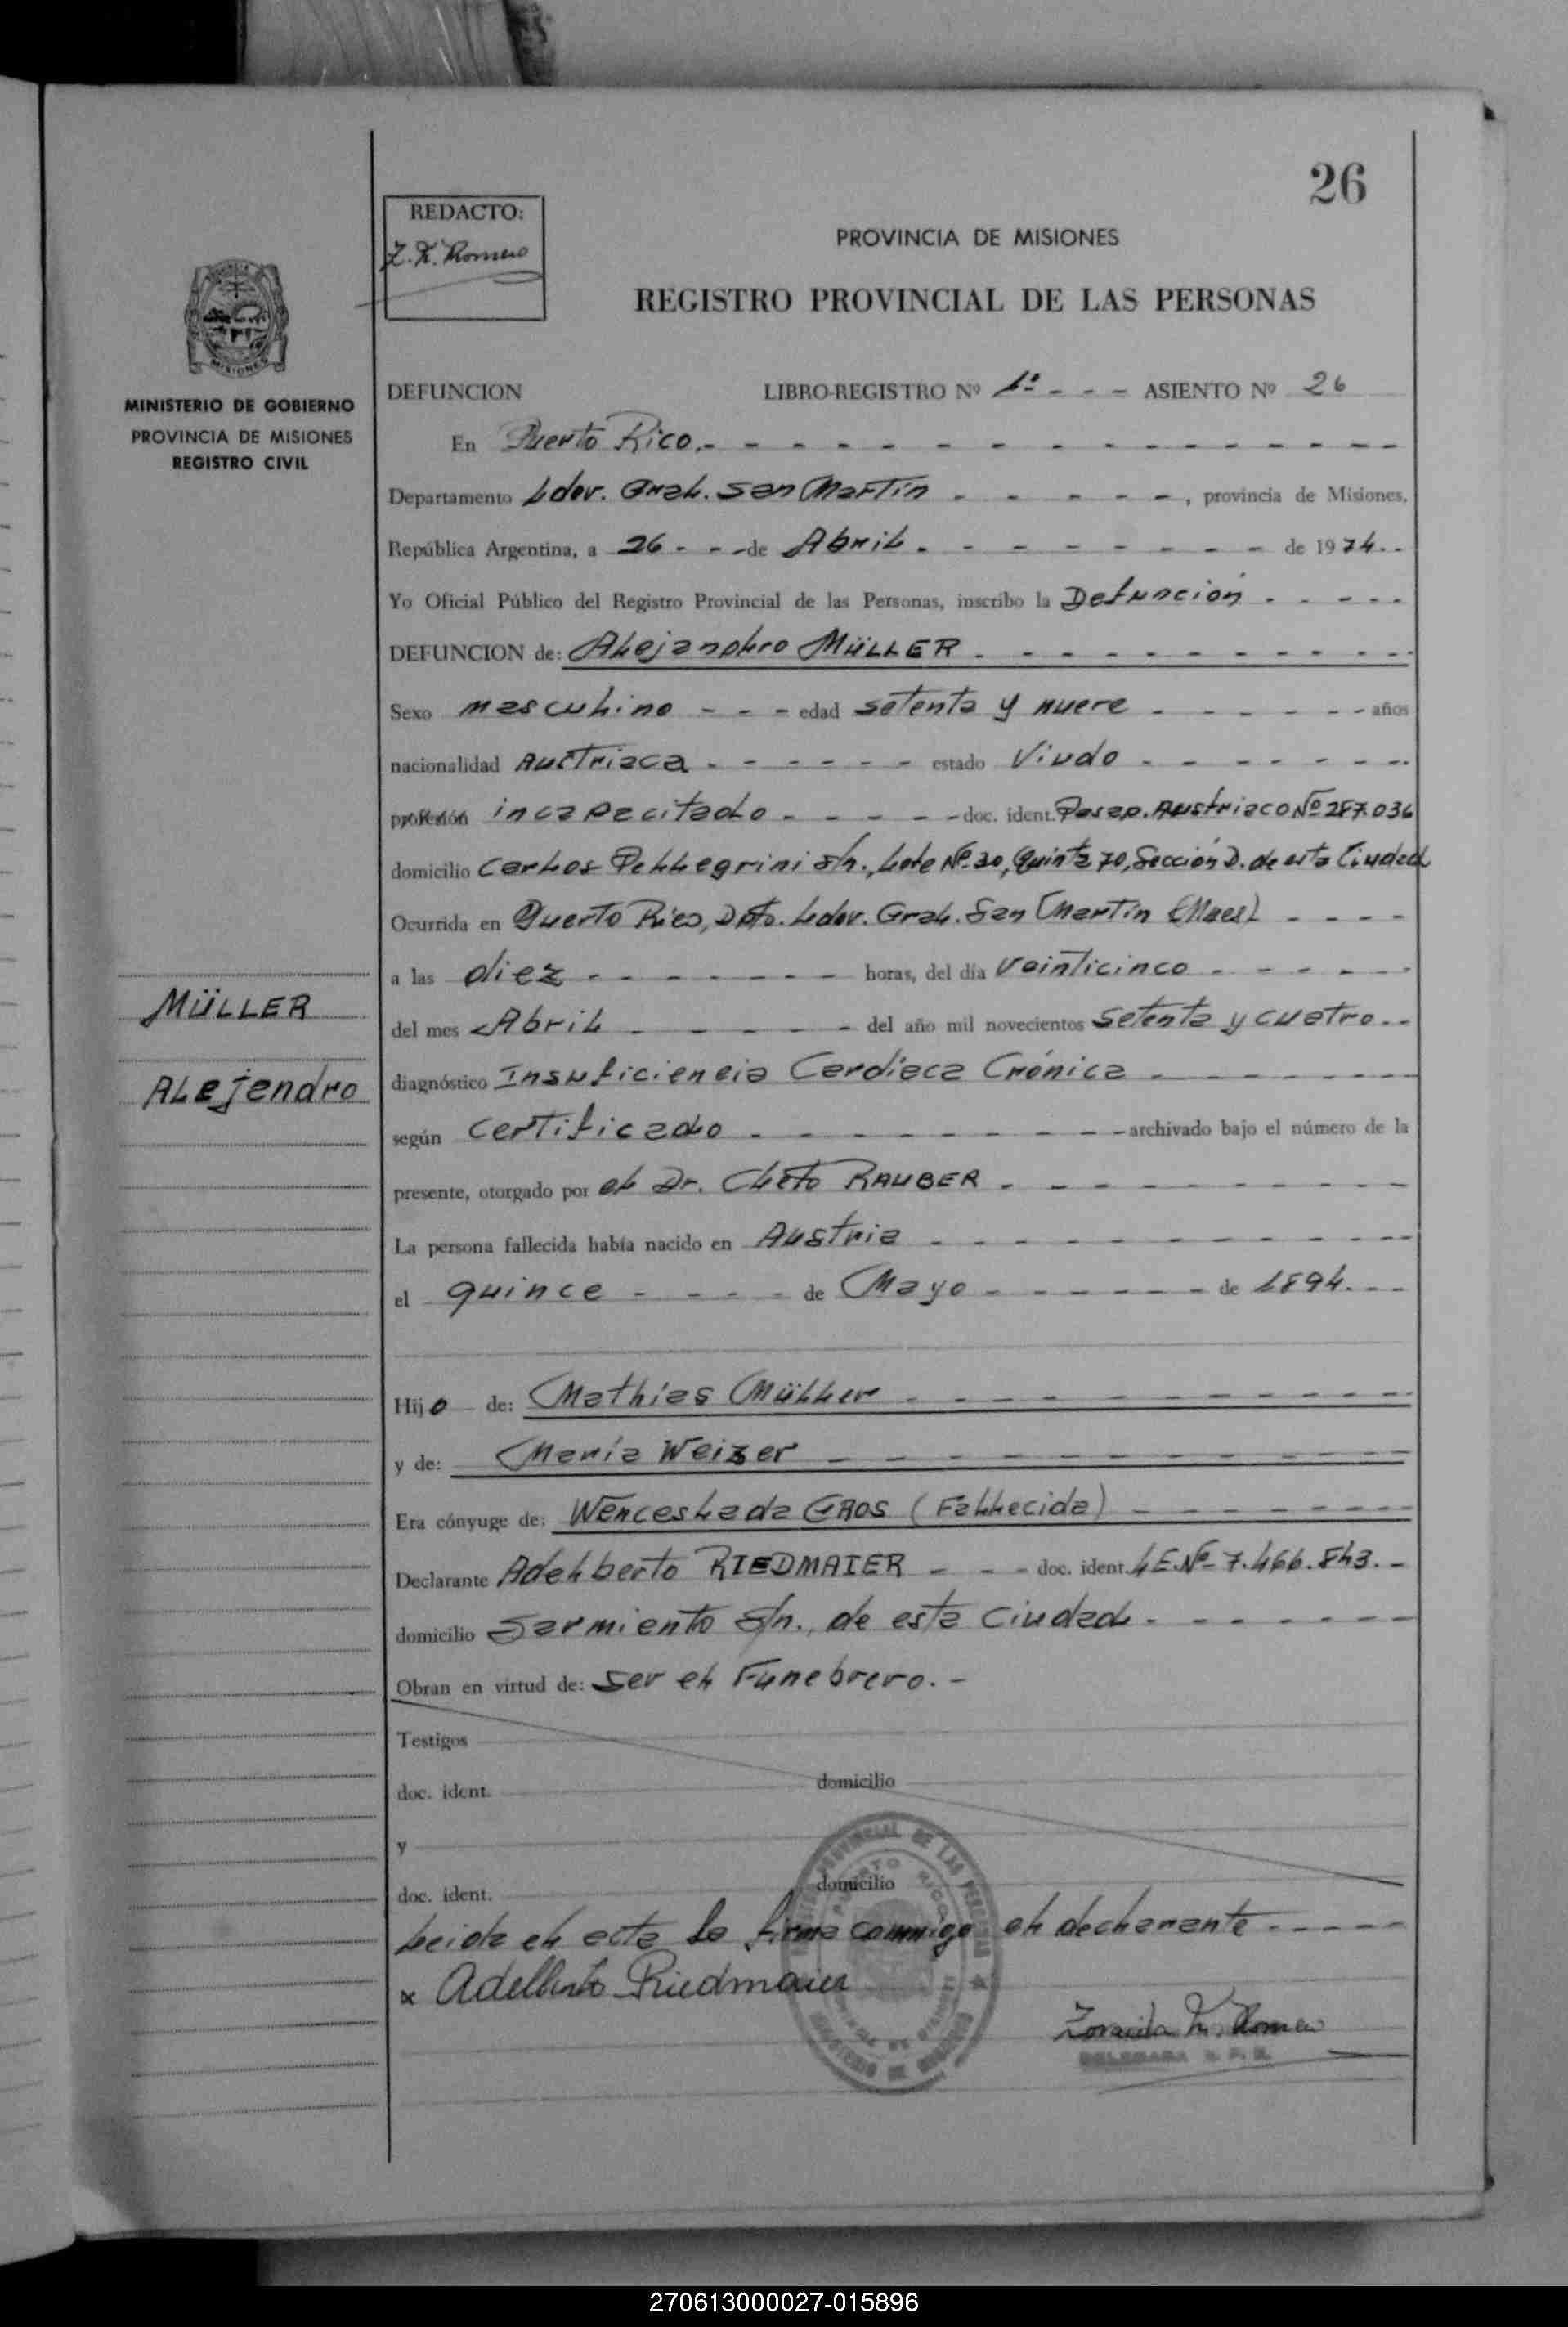 26
REDACTO:
Z. K. Romero
PROVINCIA DE MISIONES
REGISTRO PROVINCIAL DE LAS PERSONAS
MISIONES
MINISTERIO DE GOBIERNO
PROVINCIA DE MISIONES
REGISTRO CIVIL
DEFUNCION LIBRO-REGISTRO Nº 1º - - - ASIENTO Nº 26
En Puerto Rico.- - - - - - - - - - - - - -
Departamento Ldor. Gral. San Martín - - - - - -, provincia de Misiones,
República Argentina, a 26 - - - de Abril. - - - - - - - - de 1974. - -
Yo Oficial Público del Registro Provincial de las Personas, inscribo la Defunción - - - - -
DEFUNCION de: Alejandro MÜLLER - - - - - - - - - -
Sexo masculino - - - edad setenta y nueve - - - - - - - años
nacionalidad Austriaca - - - - - - estado Viudo - - - - - - -
profesión incapacitado - - - - - - doc. ident. Pasap. Austriaco Nº 287.036
domicilio Carlos Pellegrini s/n., Lote Nº 30, Quinta 70, Sección D. de esta Ciudad
Ocurrida en Puerto Rico, Dpto. Ldor. Gral. San Martín (Mnes) - - - -
a las diez - - - - - - - horas, del día veinticinco - - - - -
MÜLLER
del mes Abril - - - - - - del año mil novecientos setenta y cuatro. - -
ALejandro
diagnóstico Insuficiencia Cardíaca Crónica - - - - - - -
según certificado - - - - - - - - - archivado bajo el número de la
presente, otorgado por el Dr. Cleto RAUBER - - - - - - - - -
La persona fallecida había nacido en Austria - - - - - - - - - - -
el quince - - - - de Mayo - - - - - - de 1894. - - -
Hijo de: Mathias Müller - - - - - - - - - - - -
y de: María Weizer - - - - - - - - - - - - -
Era cónyuge de: Wenceslada GROS (Fallecida) - - - - - - -
Declarante Adelberto RIEDMAIER - - - doc. ident. LE.Nº 7.466.843. -
domicilio Sarmiento s/n., de esta Ciudad - - - - - - -
Obran en virtud de: ser el Funebrero. -
Testigos
doc. ident. domicilio
y
doc. ident. domicilio
Leida el acta la firma conmigo el declarante - - - - -
x Adelberto Riedmaier
Zoraida K. Romero
DELEGADA R. P. P.
270613000027-015896